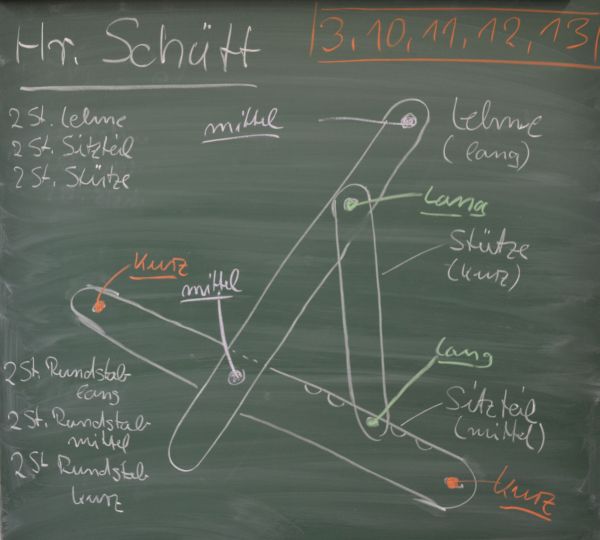 Hr. Schütt
3, 10, 11, 12, 13
2 St. Lehne
2 St. Sitzteil
2 St. Stütze
mittel
Lehne
(lang)
Lang
Stütze
(kurz)
kurz
mittel
Lang
2 St. Rundstab
lang
2 St. Rundstab
mittel
2 St Rundstab
kurz
Sitzteil
(mittel)
kurz